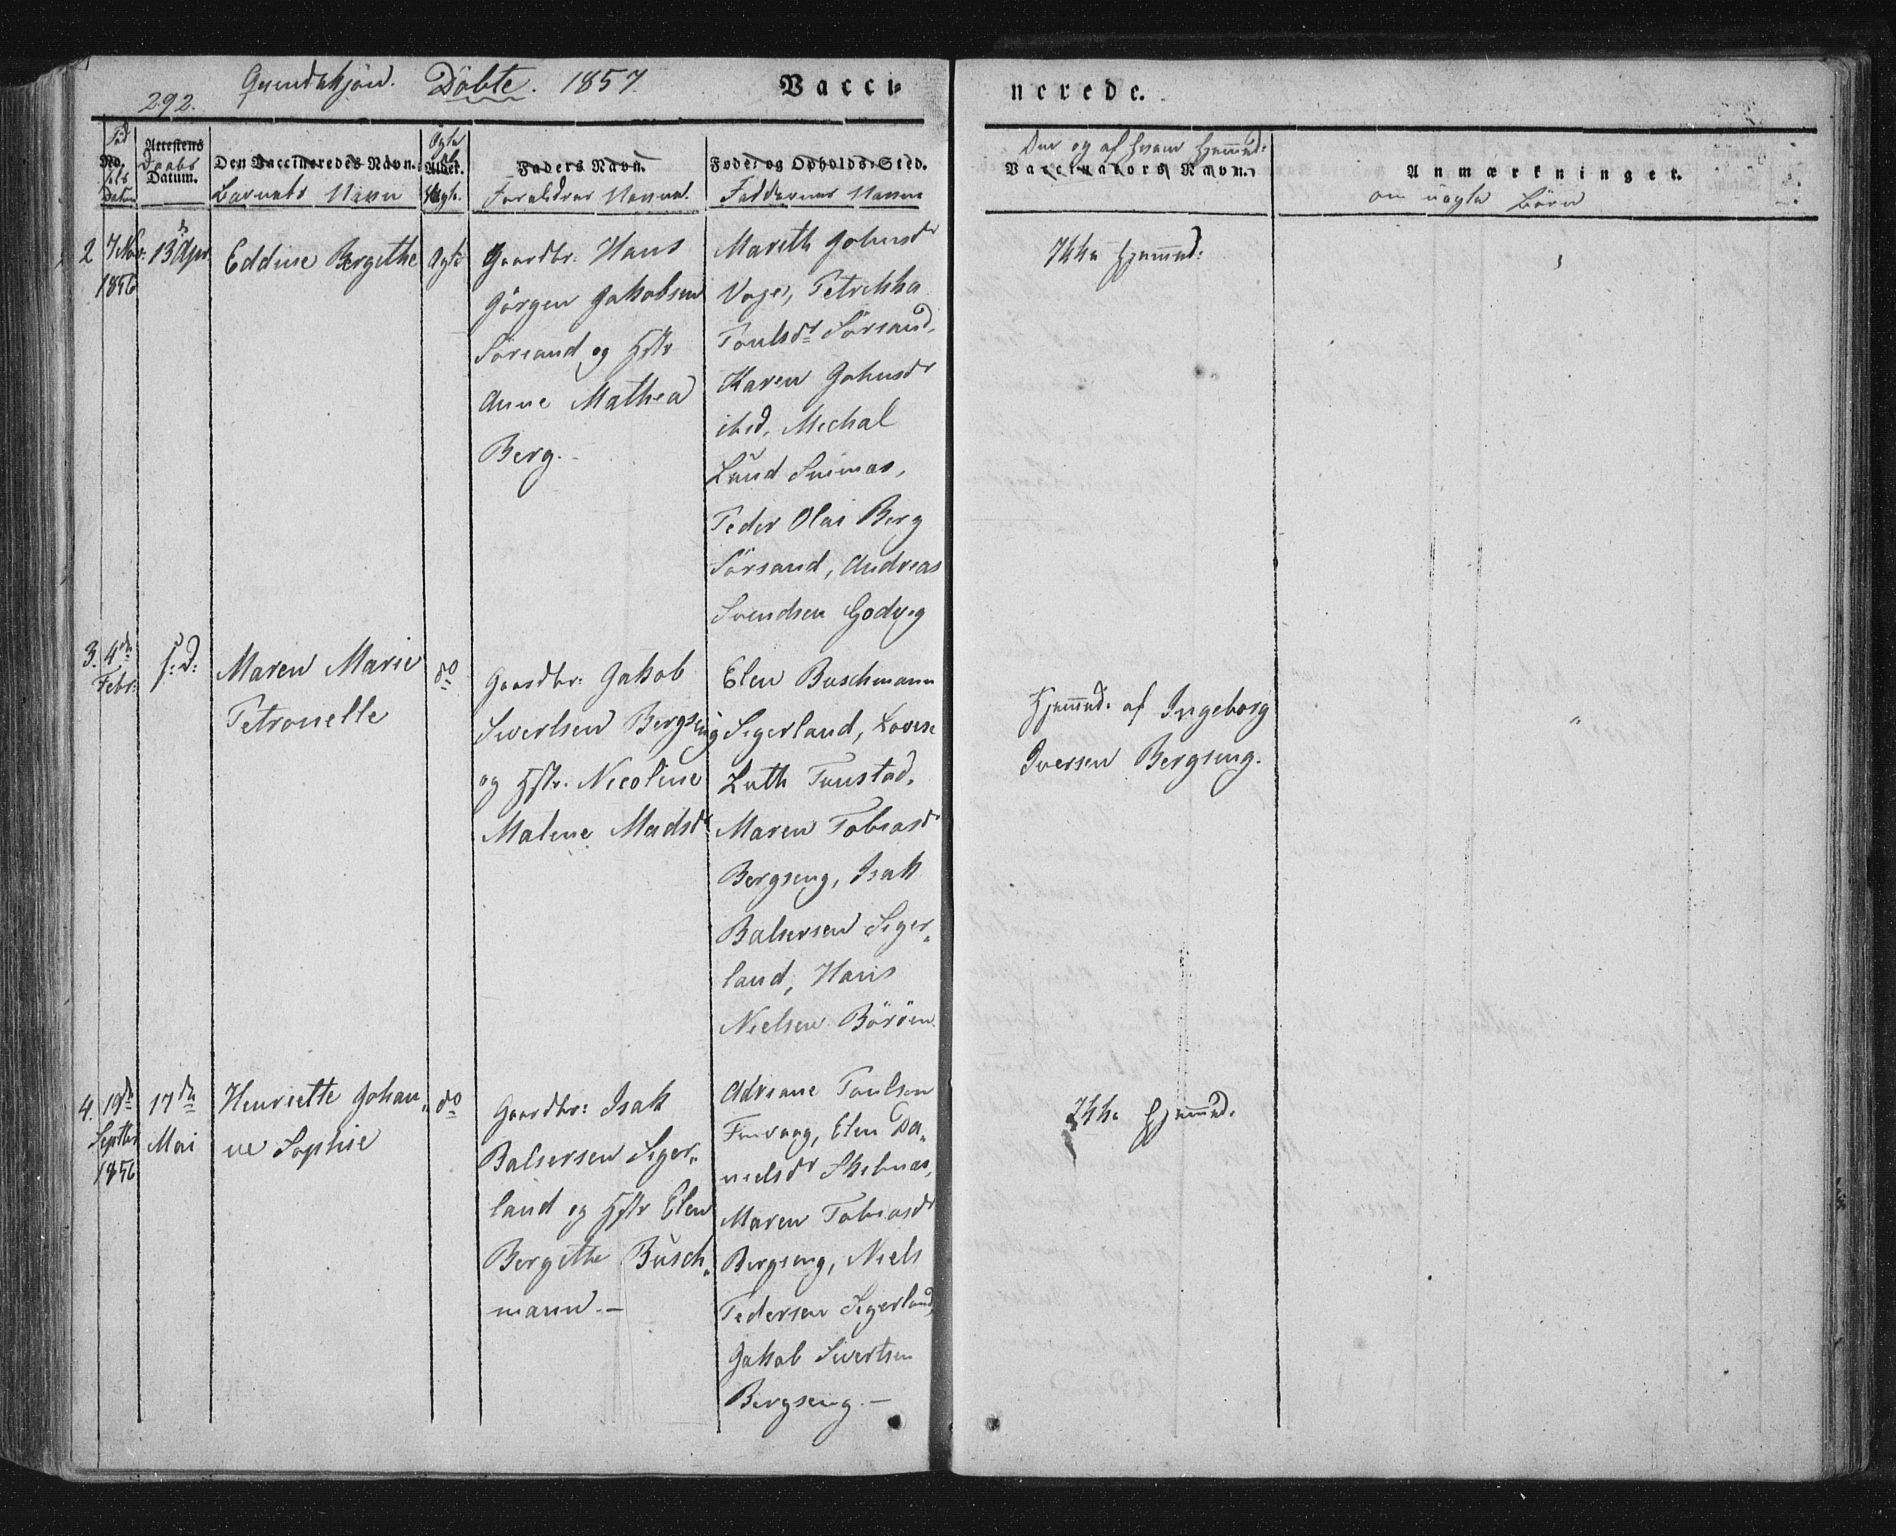 292. Qvindekjön. Döbte. 1857. Vacci-
nerede.
No. Attestens Datum. Den Vaccineredes Navn. Alder. Faders Navn. Føde- og Opholds-Sted.
Daabs Barnets Navn Ægte Forældres Navne. Faddernes Navne
Vaccinators Navn. Anmærkninger.
Om og af hvem hjemmed: om uægte Börn
2 7 Nov: 1856
13de Apr
Eddine Bergithe
Ægte
Gaardbr: Hans
Jörgen Jakobsen
Sörsand og Hstr
Anne Mathea
Berg.
Mareth Johnsdr
Voge, Petrikka
Poulsdr Sörsand,
Karen Johnsdr
ibid, Mechal
Lund
Peder Olai Berg
Sörsand, Andreas
Svendsen Godveg
Ikke hjemmed:
3. 4de Febr:
s: d:
Maren Marie
Petronelle
do
Gaardbr: Jakob
Sivertsen Bergseng
og Hstr. Nicoline
Malene Madsdr
Elen Buschmann
Segerland, Lovise
Luth Tunstad,
Maren Tobiasdr
Bergseng, Isak
Balsersen Seger-
land, Hans
Nielsen Böröen
Hjemmed. af Ingeborg
Iversen Bergseng.
"
4. 19de Septbr 1856
17de Mai
Henriette Johan-
ne Sophie
do
Gaardbr: Isak
Balsersen Seger-
land og Hstr Elen
Bergithe Busch-
mann. —
Adriane Poulsen
Finvaag, Elen Da-
nielsdr
Maren Tobiasdr
Bergseng, Niels
Pedersen Segerland,
Jakob Sivertsen
Bergseng. —
Ikke hjemmed.